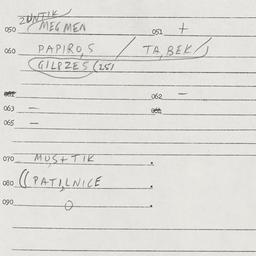 ZUNTIK
050 MEGMEN 051 +
060 PAPIROS / TABEK
GILPZES (25)
062 –
063 –
065 –
070 MUS+TIK .
080 ((PATILNICE .
090 O .